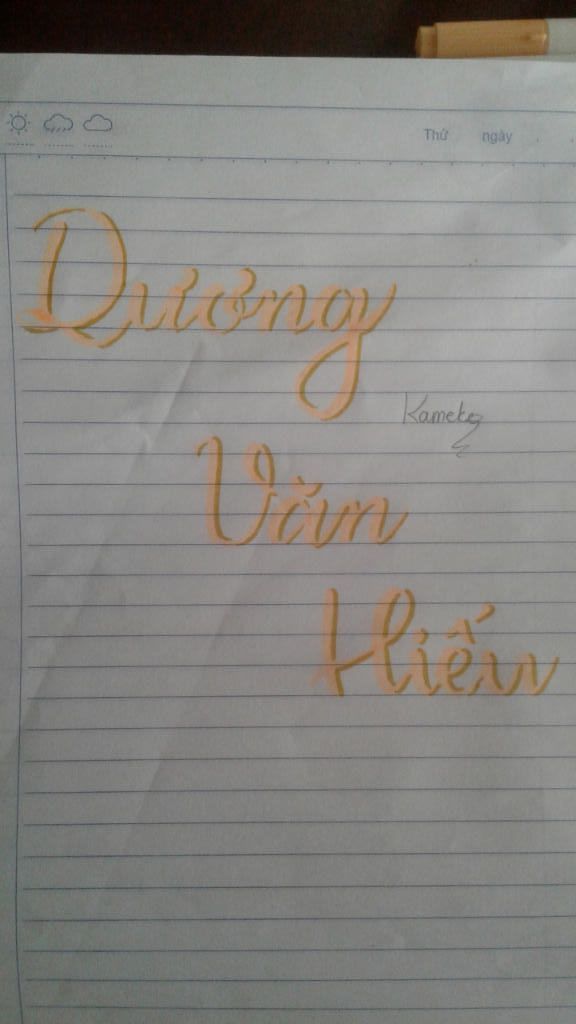 Thứ ngày
Dương
Kameko
Văn
Hiếu